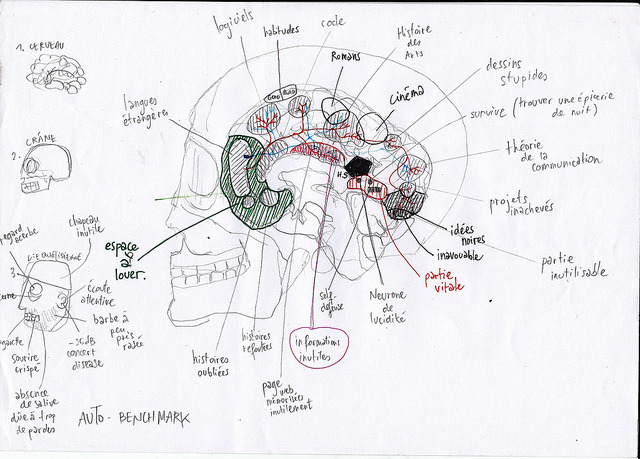 1. CERVEAU
logiciels
habitudes
code
Histoire
des
Arts
Romans
cinéma
dessins
stupides
survivre (trouver une épicerie
de nuit)
théorie
de la
communication
projets
inachevés
idées
noires
inavouable
partie
inutilisable
partie
vitale
Neurone
de
lucidité
self
defense
informations
inutiles
page
web
mémorisées
inutilement
histoires
refoulées
histoires
oubliées
espace
à
louer.
langues
étrangères
GOOD
BAD
H.S
2.
CRÂNE
3.
VIE QUOTIDIENNE
regard
acerbe
chapeau
inutile
écoute
attentive
barbe à
peu
près
rasée
-15 dB
concert
disease
sourire
crispé
absence
de salive
dûe à trop
de paroles
AUTO-BENCHMARK